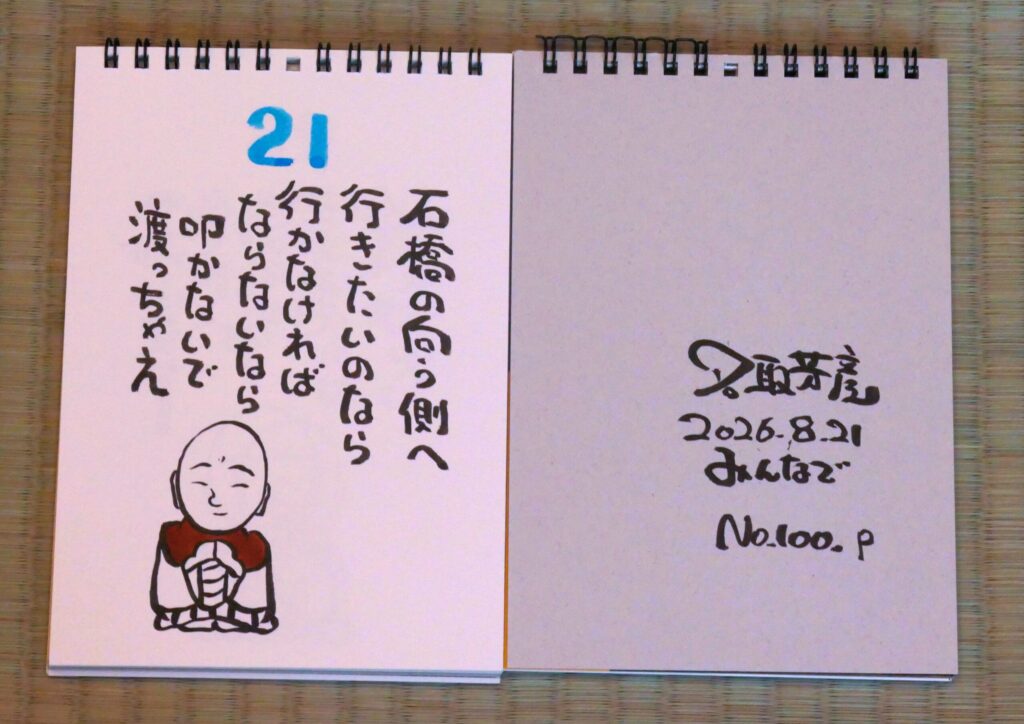 21
石橋の向う側へ
行きたいのなら
行かなければ
ならないなら
叩かないで
渡っちゃえ
取芽彦
2026.8.21
みんなで
No.100.P